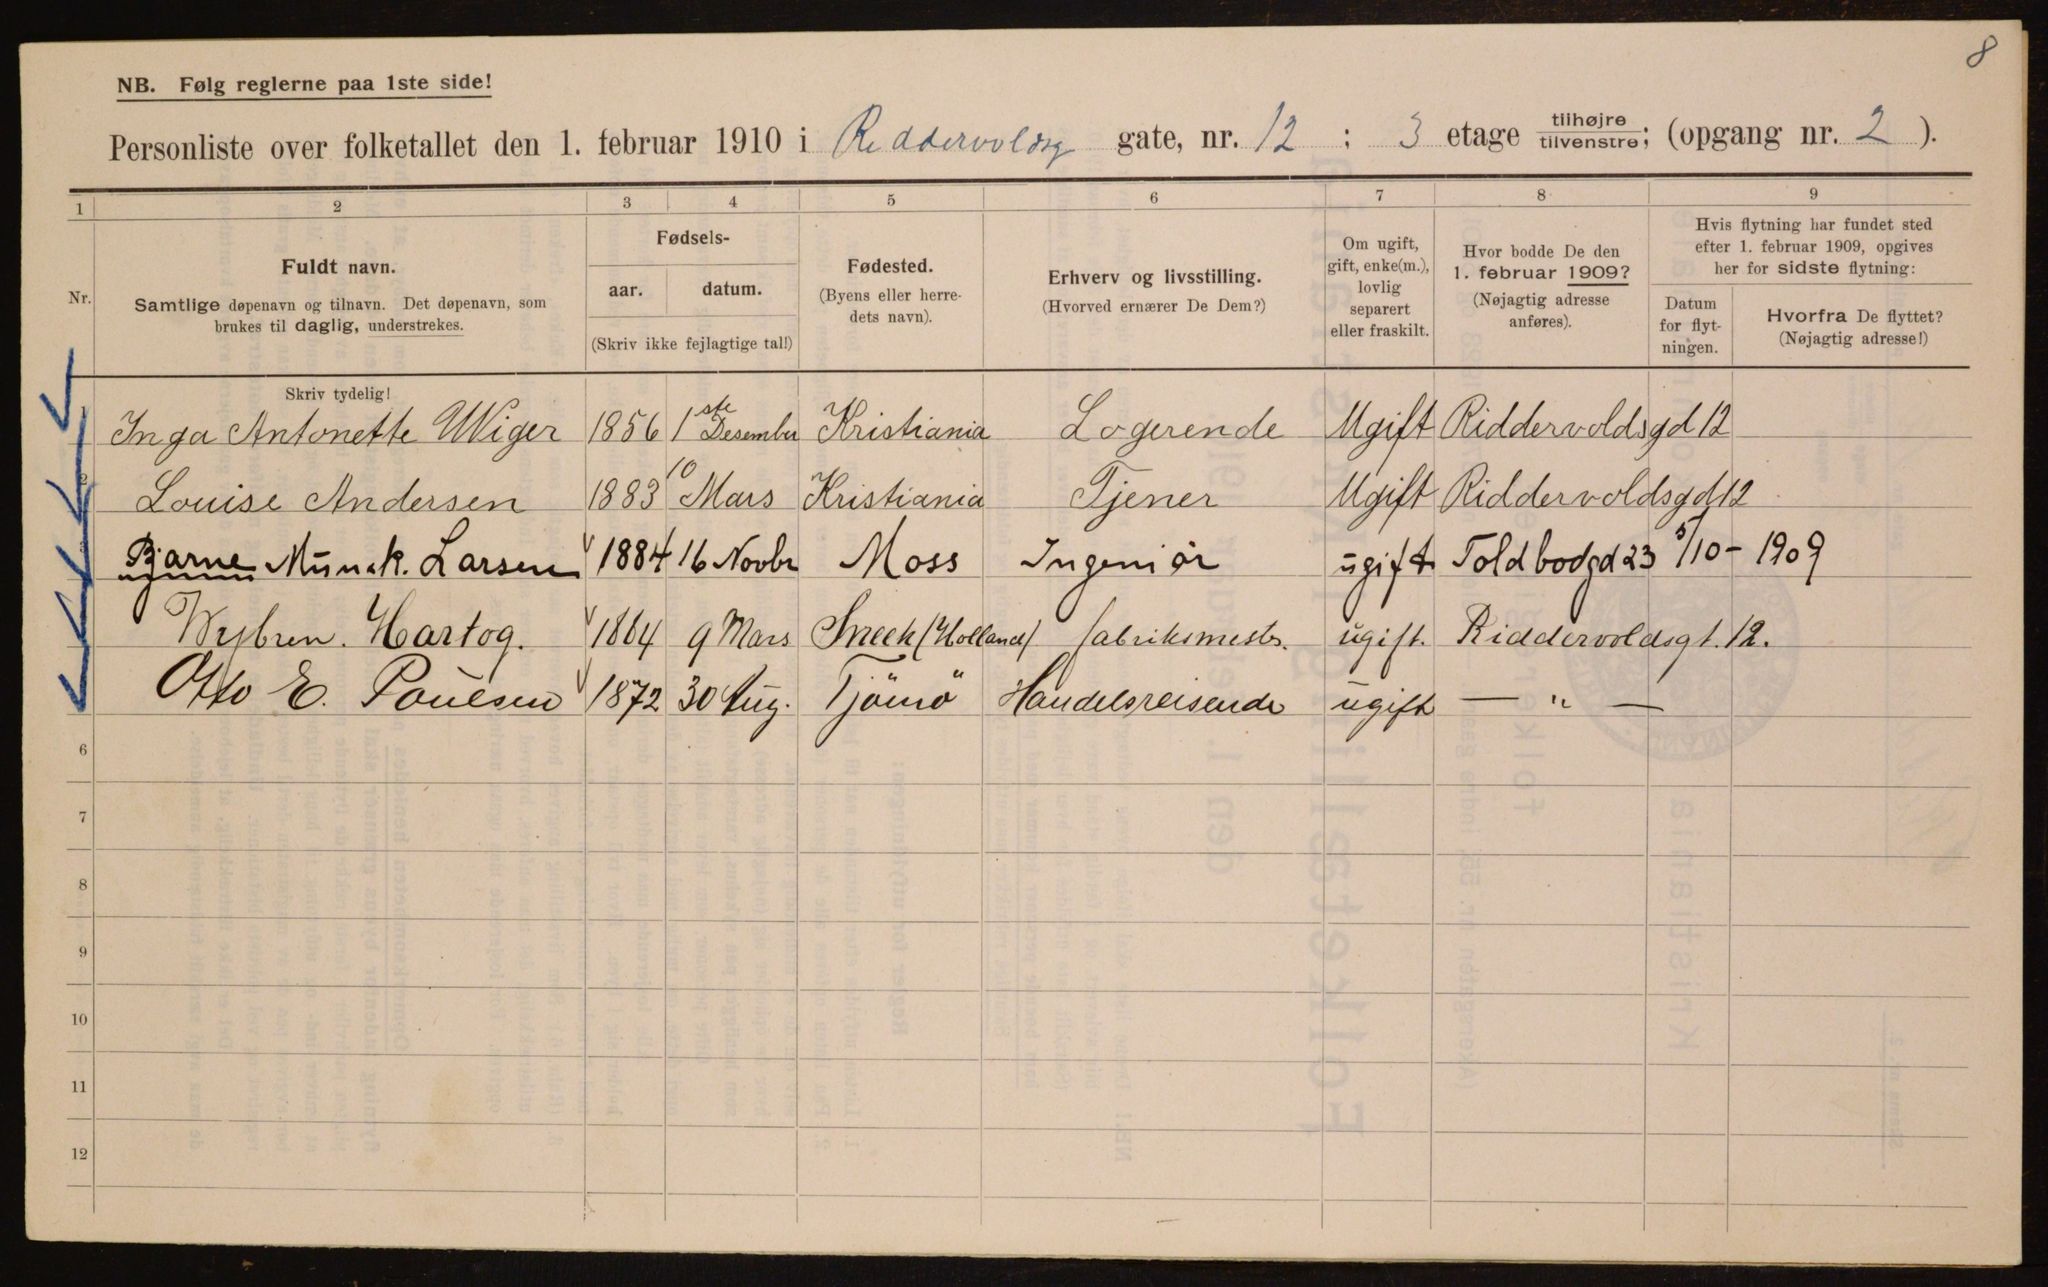 8
NB. Følg reglerne paa 1ste side!
Personliste over folketallet den 1. februar 1910 i Riddervoldsg gate, nr. 12 ; 3 etage tilhøjre/tilvenstre; (opgang nr. 2 ).
1 2 3 4 5 6 7 8 9
Nr.
Fuldt navn.
Samtlige døpenavn og tilnavn. Det døpenavn, som
brukes til daglig, understrekes.
Fødsels-
aar. datum.
(Skriv ikke fejlagtige tal!)
Fødested.
(Byens eller herre-
dets navn).
Erhverv og livsstilling.
(Hvorved ernærer De Dem?)
Om ugift,
gift, enke(m.),
lovlig
separert
eller fraskilt.
Hvor bodde De den
1. februar 1909?
(Nøjagtig adresse
anføres).
Hvis flytning har fundet sted
efter 1. februar 1909, opgives
her for sidste flytning:
Datum
for flyt-
ningen.
Hvorfra De flyttet?
(Nøjagtig adresse!)
Skriv tydelig!
1 Inga Antonette Wiger 1856 1ste Desember Kristiania Logerende Ugift Riddervoldsgd 12
2 Louise Andersen 1883 10 Mars Kristiania Tjener Ugift Riddervoldsgd 12
Bjarne Munck. Larsen 1884 16 Novbr Moss Ingeniör ugift Toldbodgd 23 5/10 - 1909
Wybren. Hartog. 1864 9 Mars Sneek (Holland) fabriksmestr. ugift. Riddervoldsgt. 12.
Otto E. Poulsen 1872 30 Aug. Tjömö Handelsreisende ugift — " —
6
7
8
9
10
11
12